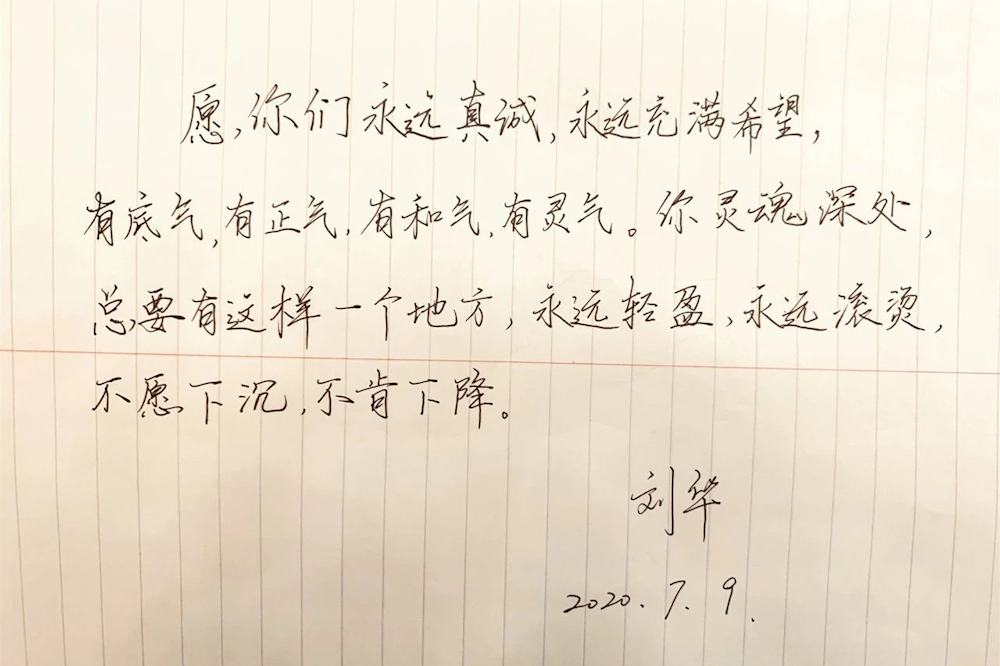 愿,你们永远真诚,永远充满希望,
有底气,有正气,有和气,有灵气。你灵魂深处,
总要有这样一个地方,永远轻盈,永远滚烫,
不愿下沉,不肯下降。
刘华
2020.7.9.